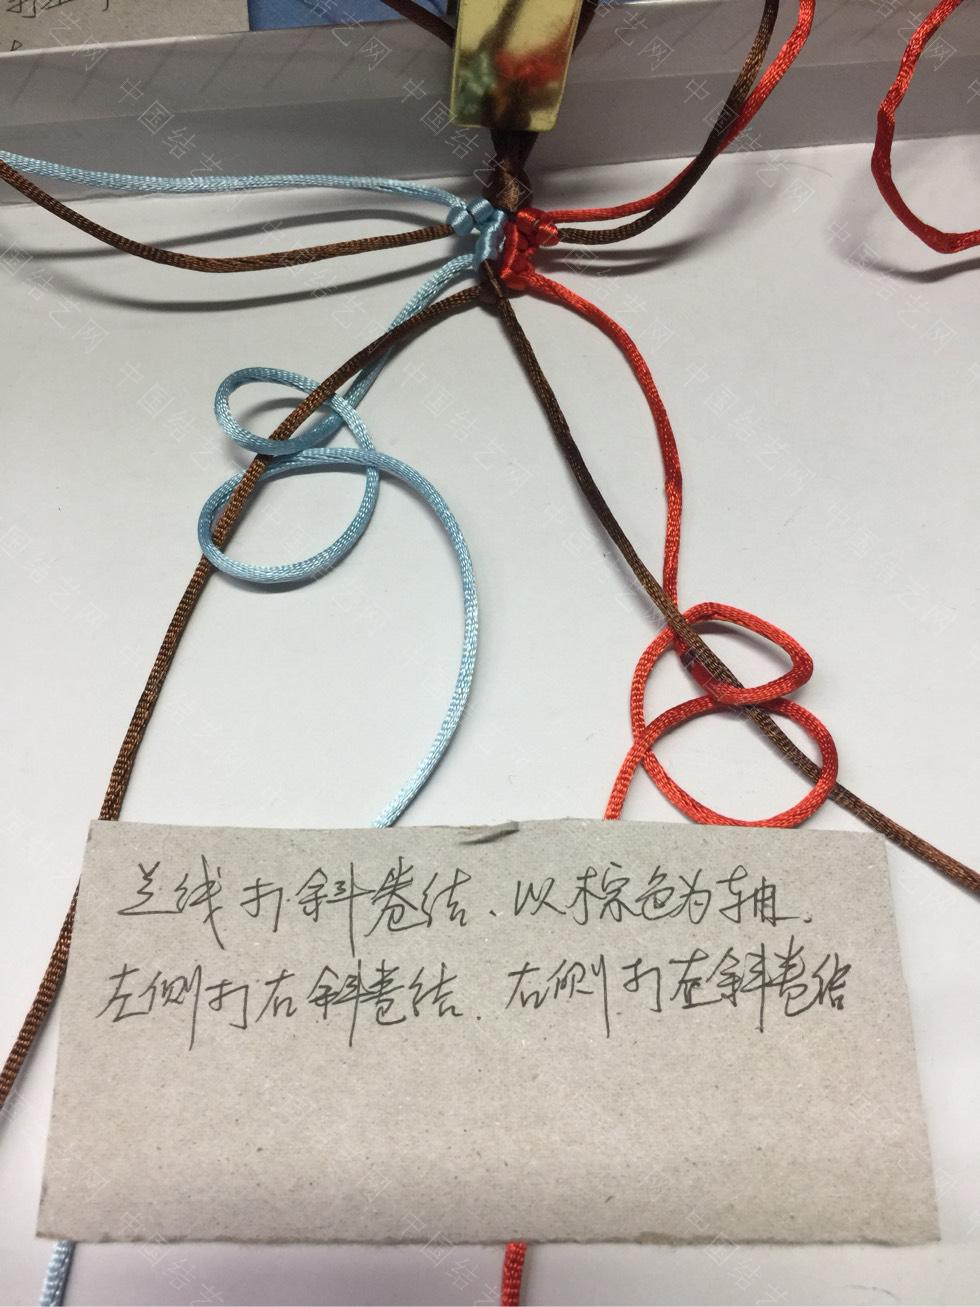 兰线打斜卷结、以棕色为轴.
左侧打右斜卷结. 右侧打左斜卷结
中国结艺网